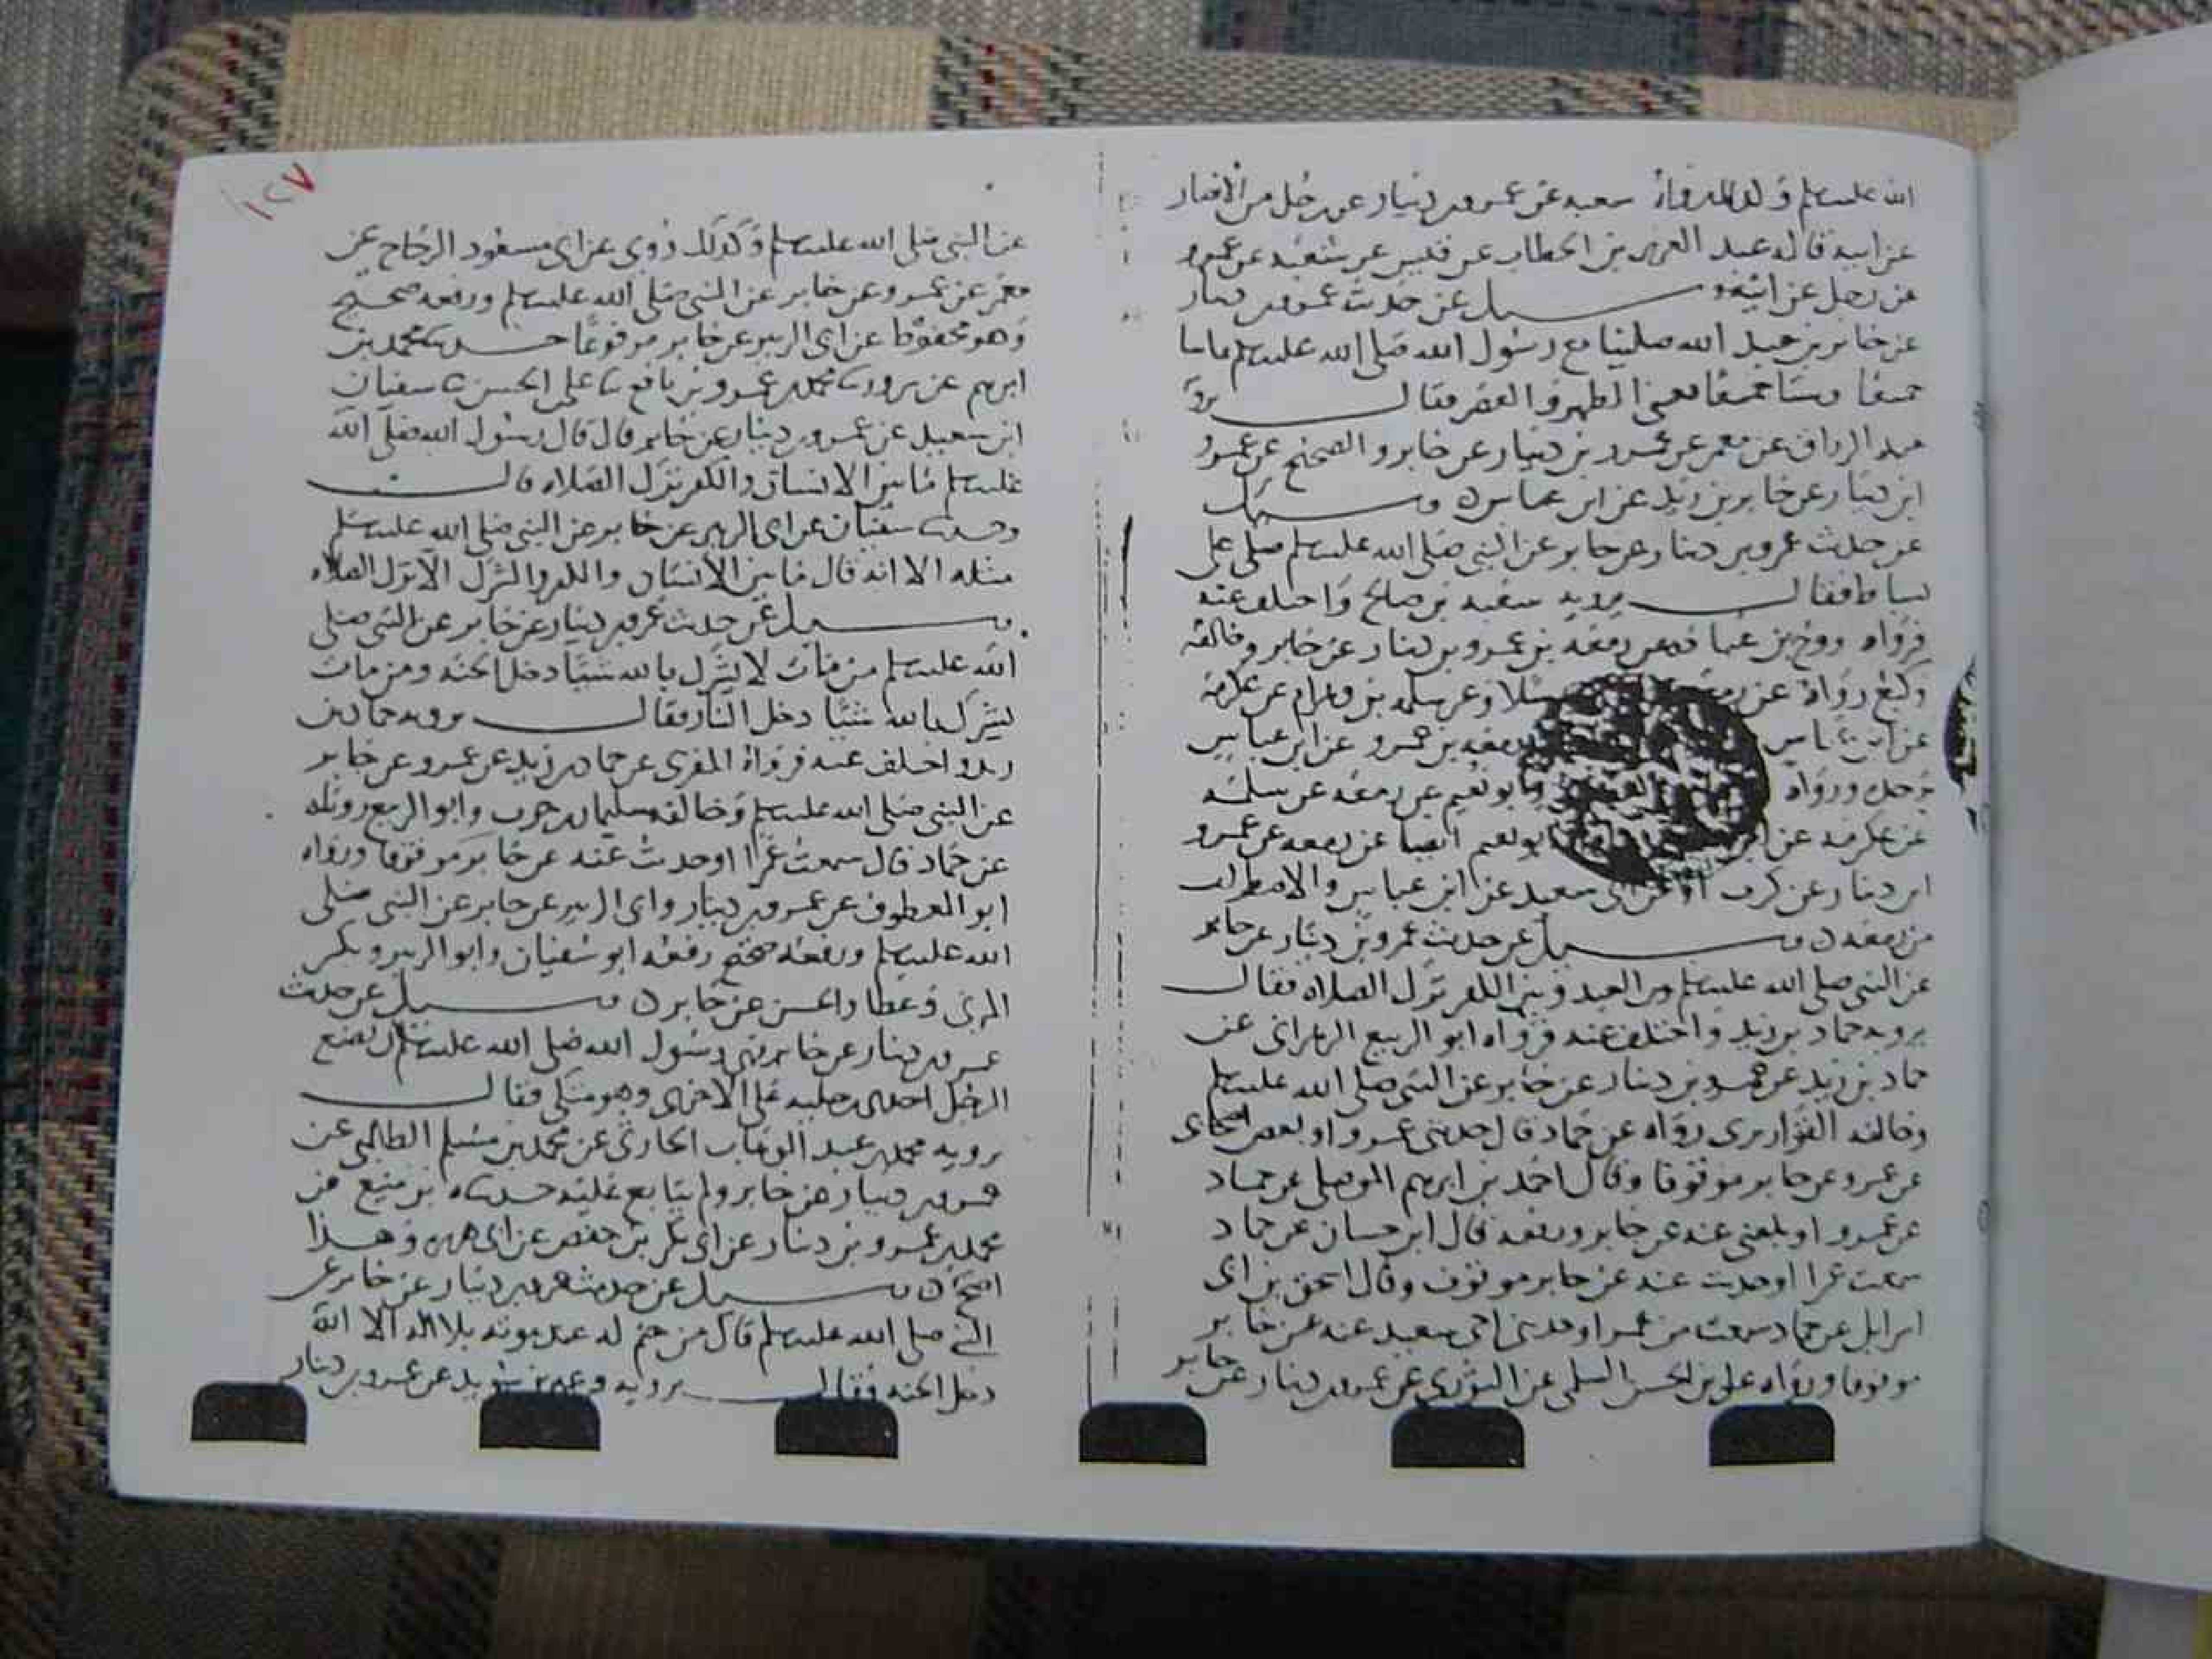 الله عليه وسلم وكذلك رواه سعيد عن عمرو بن دينار عن رجل من الأنصار
عن ابيه قاله عبد العزيز بن الخطاب عن قيس عن شعبة عن عمرو
عن رجل عن ابيه وسيل عن حديث عمرو بن دينار
عن جابر بن عبد الله صلينا مع رسول الله صلى الله عليه وسلم ثمانيا
جميعا وستا جميعا يعني الظهر والعصر فقال يرويه
عبد الرزاق عن معمر عن عمرو بن دينار عن جابر والصحيح عن عمرو
ابن دينار عن جابر بن زيد عن ابن عباس وسيل
عن حديث عمرو بن دينار عن جابر عن النبي صلى الله عليه وسلم صلى على
بساط فقال يرويه بن صالح واختلف عنه
فرواه روح بن عبادة عن زمعة بن عمرو بن دينار عن جابر وخالفه
وكيع رواه عن وعن سلمه بن وهرام عن عكرمة
عن ابن عباس عن ابن عباس
ورواه ابو نعيم عن زمعة عن سلمة
عن عكرمه عن ابو نعيم ايضا عن زمعه عن عمرو
ابن دينار عن كريب او عن ابي سعيد عن ابن عباس والاضطراب
من زمعه وسيل عن حديث عمرو بن دينار عن جابر
عن النبي صلى الله عليه وسلم بين العبد وبين الكفر ترك الصلاة فقال
يرويه حماد بن زيد واختلف عنه فرواه ابو الربيع الزهراني عن
حماد بن زيد عن عمرو بن دينار عن جابر عن النبي صلى الله عليه وسلم
وخالفه القواريري رواه عن حماد قال حدثني عمرو او بعض اصحابي
عن عمرو عن جابر موقوفا وقال احمد بن ابرهيم الموصلي عن حماد
عن عمرو او بلغني عنه عن جابر ورفعه قال ابن حسان عن حماد
سمعت عمرا او حدثت عنه عن جابر موقوف وقال اسحق بن ابي
اسرايل عن حماد سمعت من عمرو او حدثني اخي سعيد عنه عن جابر
موقوفا ورواه علي بن الحسن السلمي عن الثوري عن عمرو بن دينار عن جابر
١٢٧
عن النبي صلى الله عليه وسلم وكذلك روي عن ابي مسعود الزجاج عن
معمر عن عمرو عن جابر عن النبي صلى الله عليه وسلم ورفعه صحيح
وهو محفوظ عن ابي الزبير عن جابر مرفوعا حدثنا محمد بن
ابرهيم محمد بن عمرو بن نافع ثنا علي بن الحسن ثنا سفيان
ابن سعيد عن عمرو بن دينار عن جابر قال قال رسول الله صلى الله
عليه وسلم ما بين الانسان والكفر ترك الصلاه قال
وحدثنا سفيان عن ابي الزبير عن جابر عن النبي صلى الله عليه وسلم
مثله الا انه قال ما بين الانسان والكفر والشرك الا ترك الصلاه
وسيل عن حديث عمرو بن دينار عن جابر عن النبي صلى
الله عليه وسلم من مات لا يشرك بالله شيئا دخل الجنه ومن مات
يشرك بالله شيئا دخل النار فقال يرويه حماد بن
زيد واختلف عنه فرواه المقري عن حماد بن زيد عن عمرو عن جابر
عن النبي صلى الله عليه وسلم وخالفه سليمان بن حرب وابو الربيع روياه
عن حماد قال سمعت عمرا او حدثت عنه عن جابر موقوفا ورواه
ابو العطوف عن عمرو بن دينار وابي الزبير عن جابر عن النبي صلى
الله عليه وسلم ورفعه صحيح رفعه ابو سفيان وابو الزبير وبكر
المزني وعطا والحسن عن جابر وسيل عن حديث
عمرو بن دينار عن جابر نهى رسول الله صلى الله عليه وسلم ان يضع
الرجل احدى رجليه على الاخرى وهو متكي فقال
يرويه محمد بن عبد الوهاب الحارثي عن محمد بن مسلم الطائفي عن
عمرو بن دينار عن جابر ولم يتابع عليه حدثناه بن منيع عن
محمد بن عمرو بن دينار عن ابي بكر بن حفص عن ابي هريرة وهذا
اصح وسيل عن حديث عمرو بن دينار عن جابر عن
النبي صلى الله عليه وسلم قال من ختم له عند موته بلا اله الا الله
دخل الجنه فقال يرويه سويد عن عمرو بن دينار